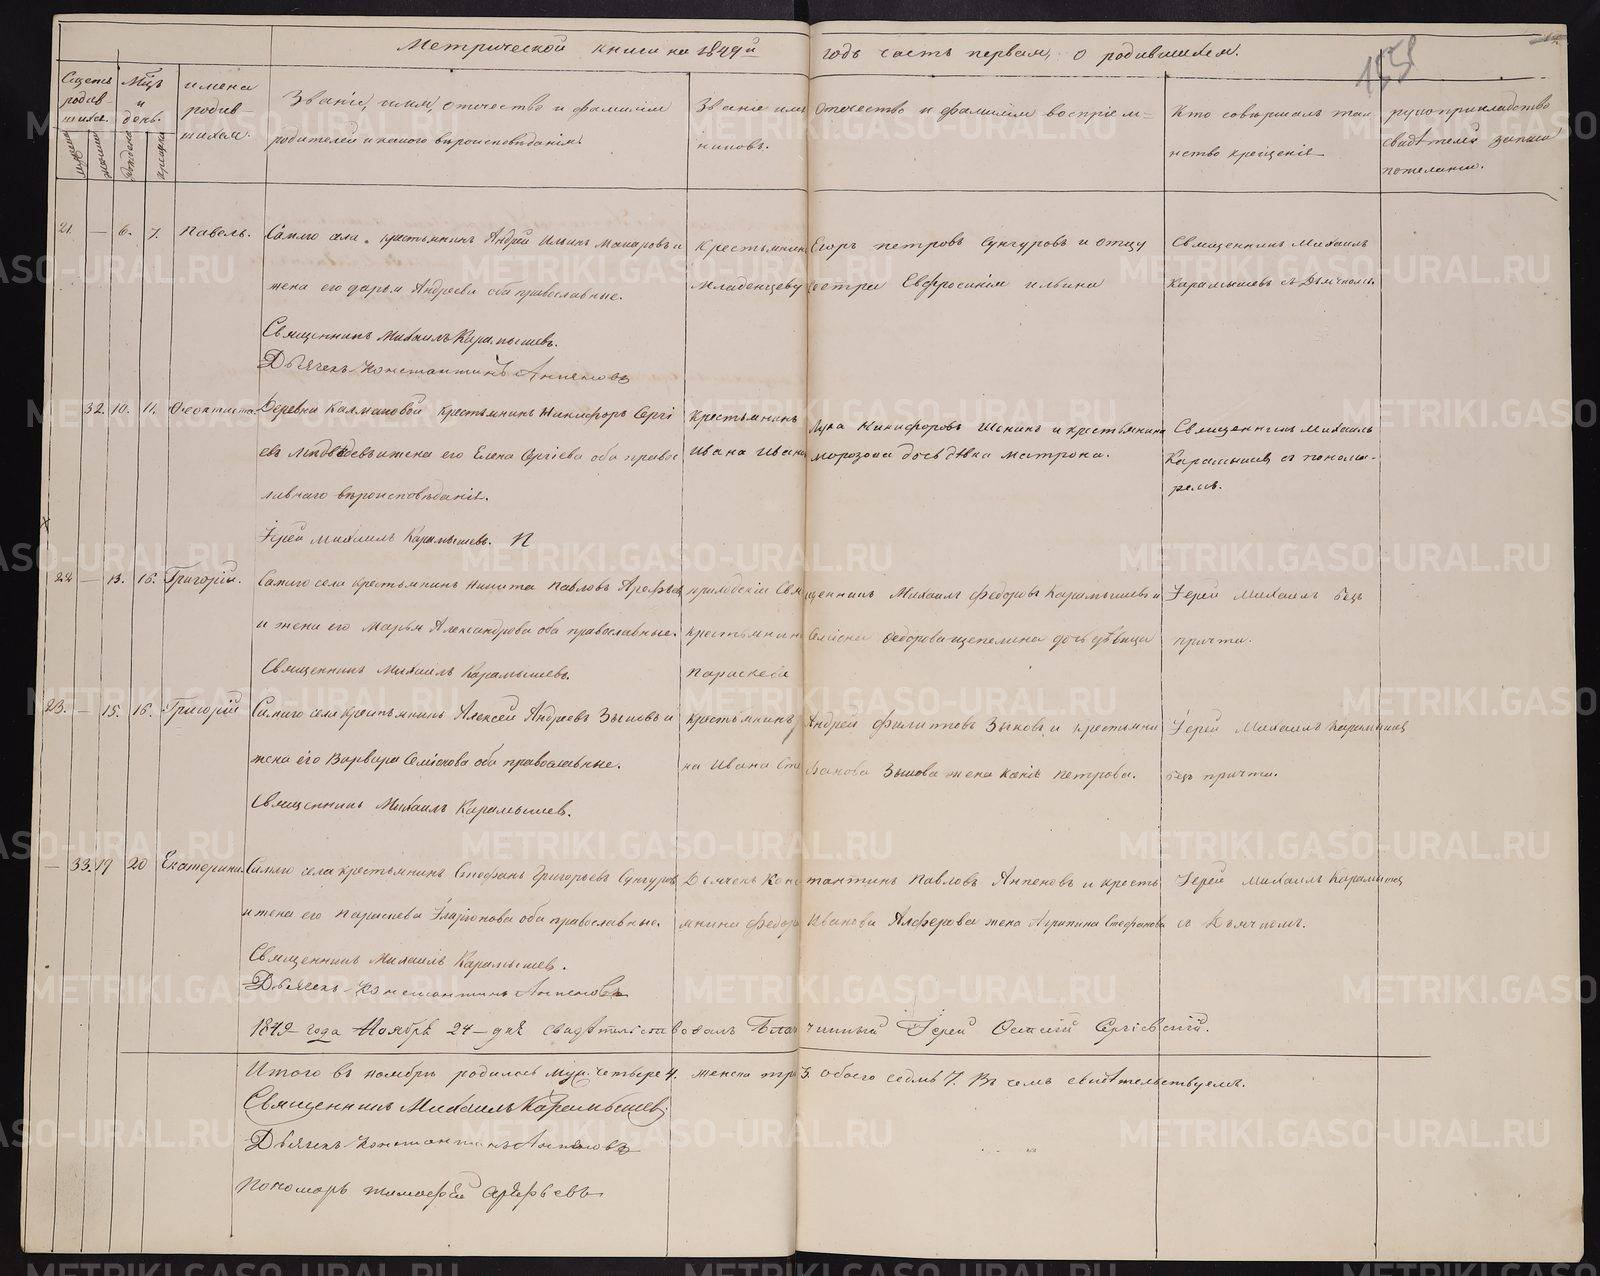 Метрической книги на 1849й годъ часть первая, о родившихся.
185
Счетъ родившихся.
Мцъ и день.
имена родившихся.
Званіе, имя, отечество и фамилія родителей и какого вѣроисповѣданія.
Званіе имя отечество и фамилія воспріемниковъ.
Кто совершалъ таинство крещенія
рукоприкладство свидѣтелей записи по желанію.
21. — 6. 7. Павелъ.
Самаго села крестьянинъ Андрей Ильинъ Макаровъ и
жена его Дарья Андреева оба православные.
Священникъ Михаилъ Карамышевъ.
Дьячекъ Константинъ Аппеновъ
Крестьянинъ Егоръ Петровъ Сунгуровъ и отцу
младенцеву сестра Евфросинія Ильина
Священникъ Михаилъ
Карамышевъ съ Дьячкомъ.
32. 10. 11. Феоктиста.
Деревни Калмаковой крестьянинъ Никифоръ Сергі
евъ Медвѣдевъ и жена его Елена Сергіева оба право
славнаго вѣроисповѣданія.
Іерей Михаилъ Карамышевъ.
Крестьянинъ Лука Никифоровъ и крестьянина
Ивана Иванова Морозова дочь дѣвка Матрона.
Священникъ Михаилъ
Карамышев съ понома-
ремъ.
22 — 13. 16. Григорій.
Самаго села крестьянинъ Никита Павловъ Арефьевъ
и жена его Марья Александрова оба православные.
Священникъ Михаилъ Карамышевъ.
приходскій Священникъ Михаилъ Федоровъ Карамышевъ и
крестьянина Семіона Федорова Щепелина дочь дѣвица
Параскева
Іерей Михаилъ безъ
причта.
23. — 15. 16. Григорій
Самаго села крестьянинъ Алексей Андреевъ Зыковъ и
жена его Варвара Семіонова оба православные.
Священникъ Михаилъ Карамышев.
крестьянинъ Андрей Филиповъ Зыковъ и крестьяни
на Ивана Стефанова Зыкова жена Ксенія Петрова.
Іерей Михаилъ Карамышев
безъ причта.
— 33. 19 20 Екатерина.
Самаго села крестьянинъ Стефанъ Григорьевъ Сунгуровъ
и жена его Параскева Иларіонова оба православные.
Священникъ Михаилъ Карамышев.
Дьячекъ Константинъ Аппеновъ
Дьячекъ Константинъ Павловъ Аппеновъ и кресть
янина Федора Иванова Алферова жена Агрипина Стефанова
Іерей Михаилъ Карамышев
со Дьячкомъ.
1849 года Ноября 24 дня свидѣтельствовалъ Благочинный Іерей Сергіевскій.
Итого въ ноябрѣ родилось муж. четыре 4. женска три 3. обоего седмь 7. Въ чемъ свидѣтельствуемъ.
Священникъ Михаилъ Карамышев.
Дьячекъ Константинъ Аппеновъ
Пономарь Тимофей Арефьевъ
METRIKI.GASO-URAL.RU